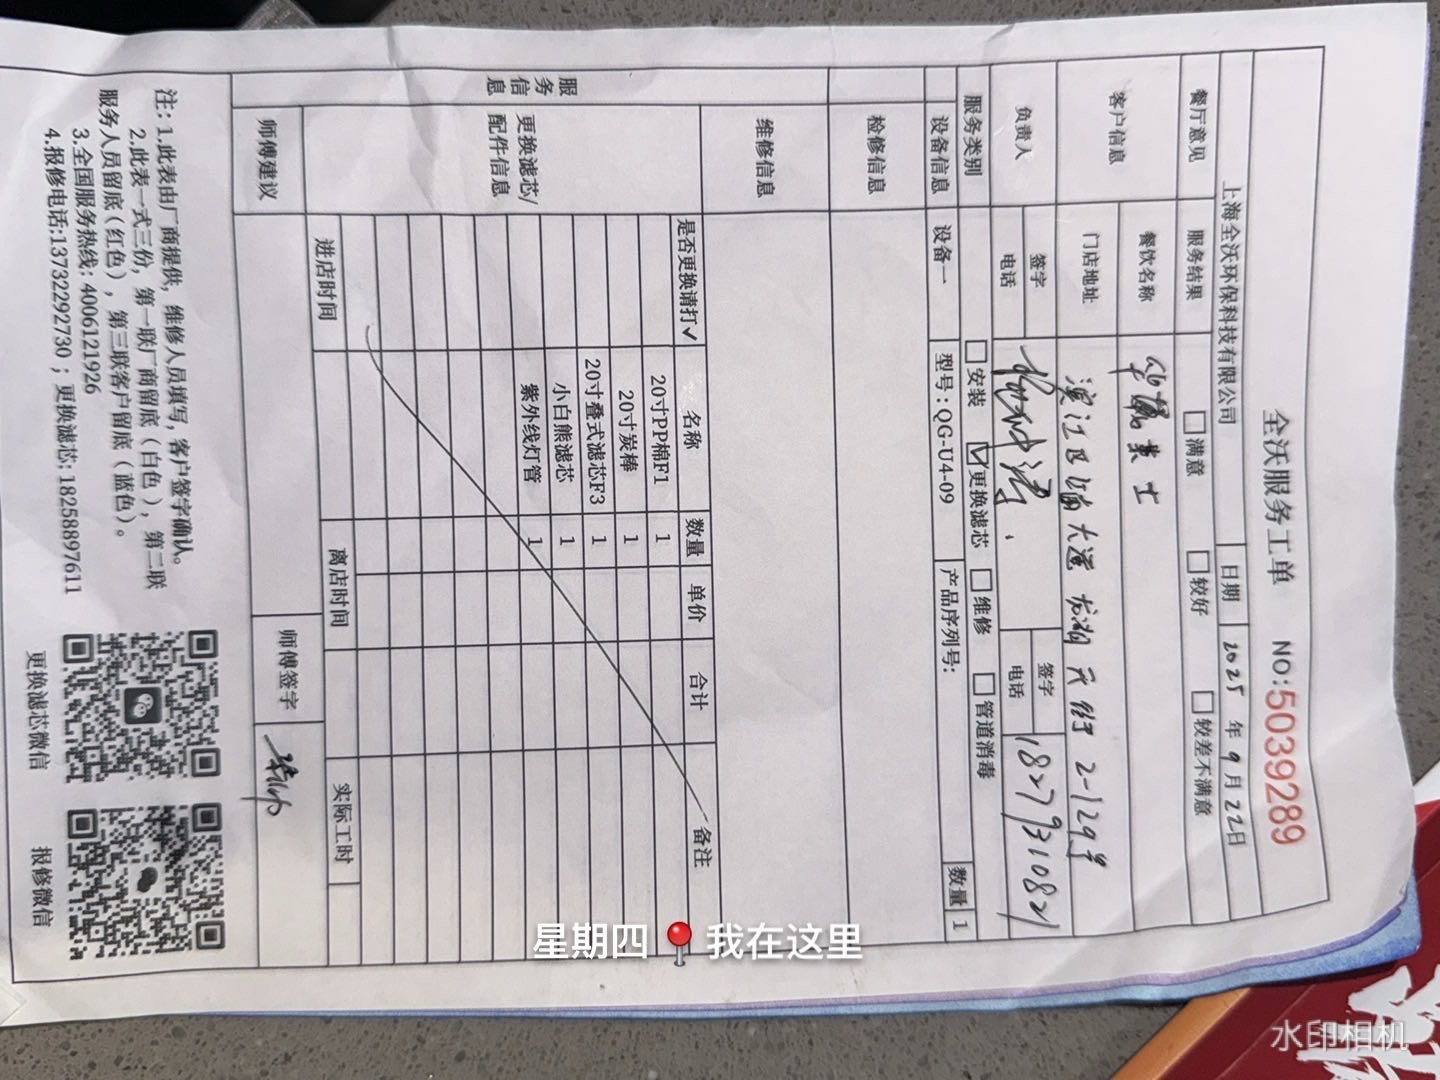 全沃服务工单 NO:5039289
上海全沃环保科技有限公司 日期 2025 年 9 月 22 日
餐厅意见 服务结果 满意 较好 较差不满意
客户信息 餐饮名称 华莱士
门店地址 滨江区 大道 龙湖天街 2-129号
负责人 签字 签字
电话 电话 18279310821
服务类别 安装 ☑更换滤芯 维修 管道消毒
设备信息 设备一 型号:QG-U4-09 产品序列号: 数量 1
检修信息
维修信息
服务信息
更换滤芯/配件信息
是否更换请打✓ 名称 数量 单价 合计 备注
20寸PP棉F1 1
20寸炭棒 1
20寸叠式滤芯F3 1
小白熊滤芯 1
紫外线灯管 1
进店时间 离店时间 实际工时
师傅建议 师傅签字
注: 1.此表由厂商提供, 维修人员填写, 客户签字确认。
2.此表一式三份, 第一联厂商留底(白色), 第二联
服务人员留底(红色), 第三联客户留底(蓝色)。
3.全国服务热线: 4006121926
4.报修电话:13732292730 ; 更换滤芯: 18258897611
更换滤芯微信 报修微信
星期四 我在这里
水印相机